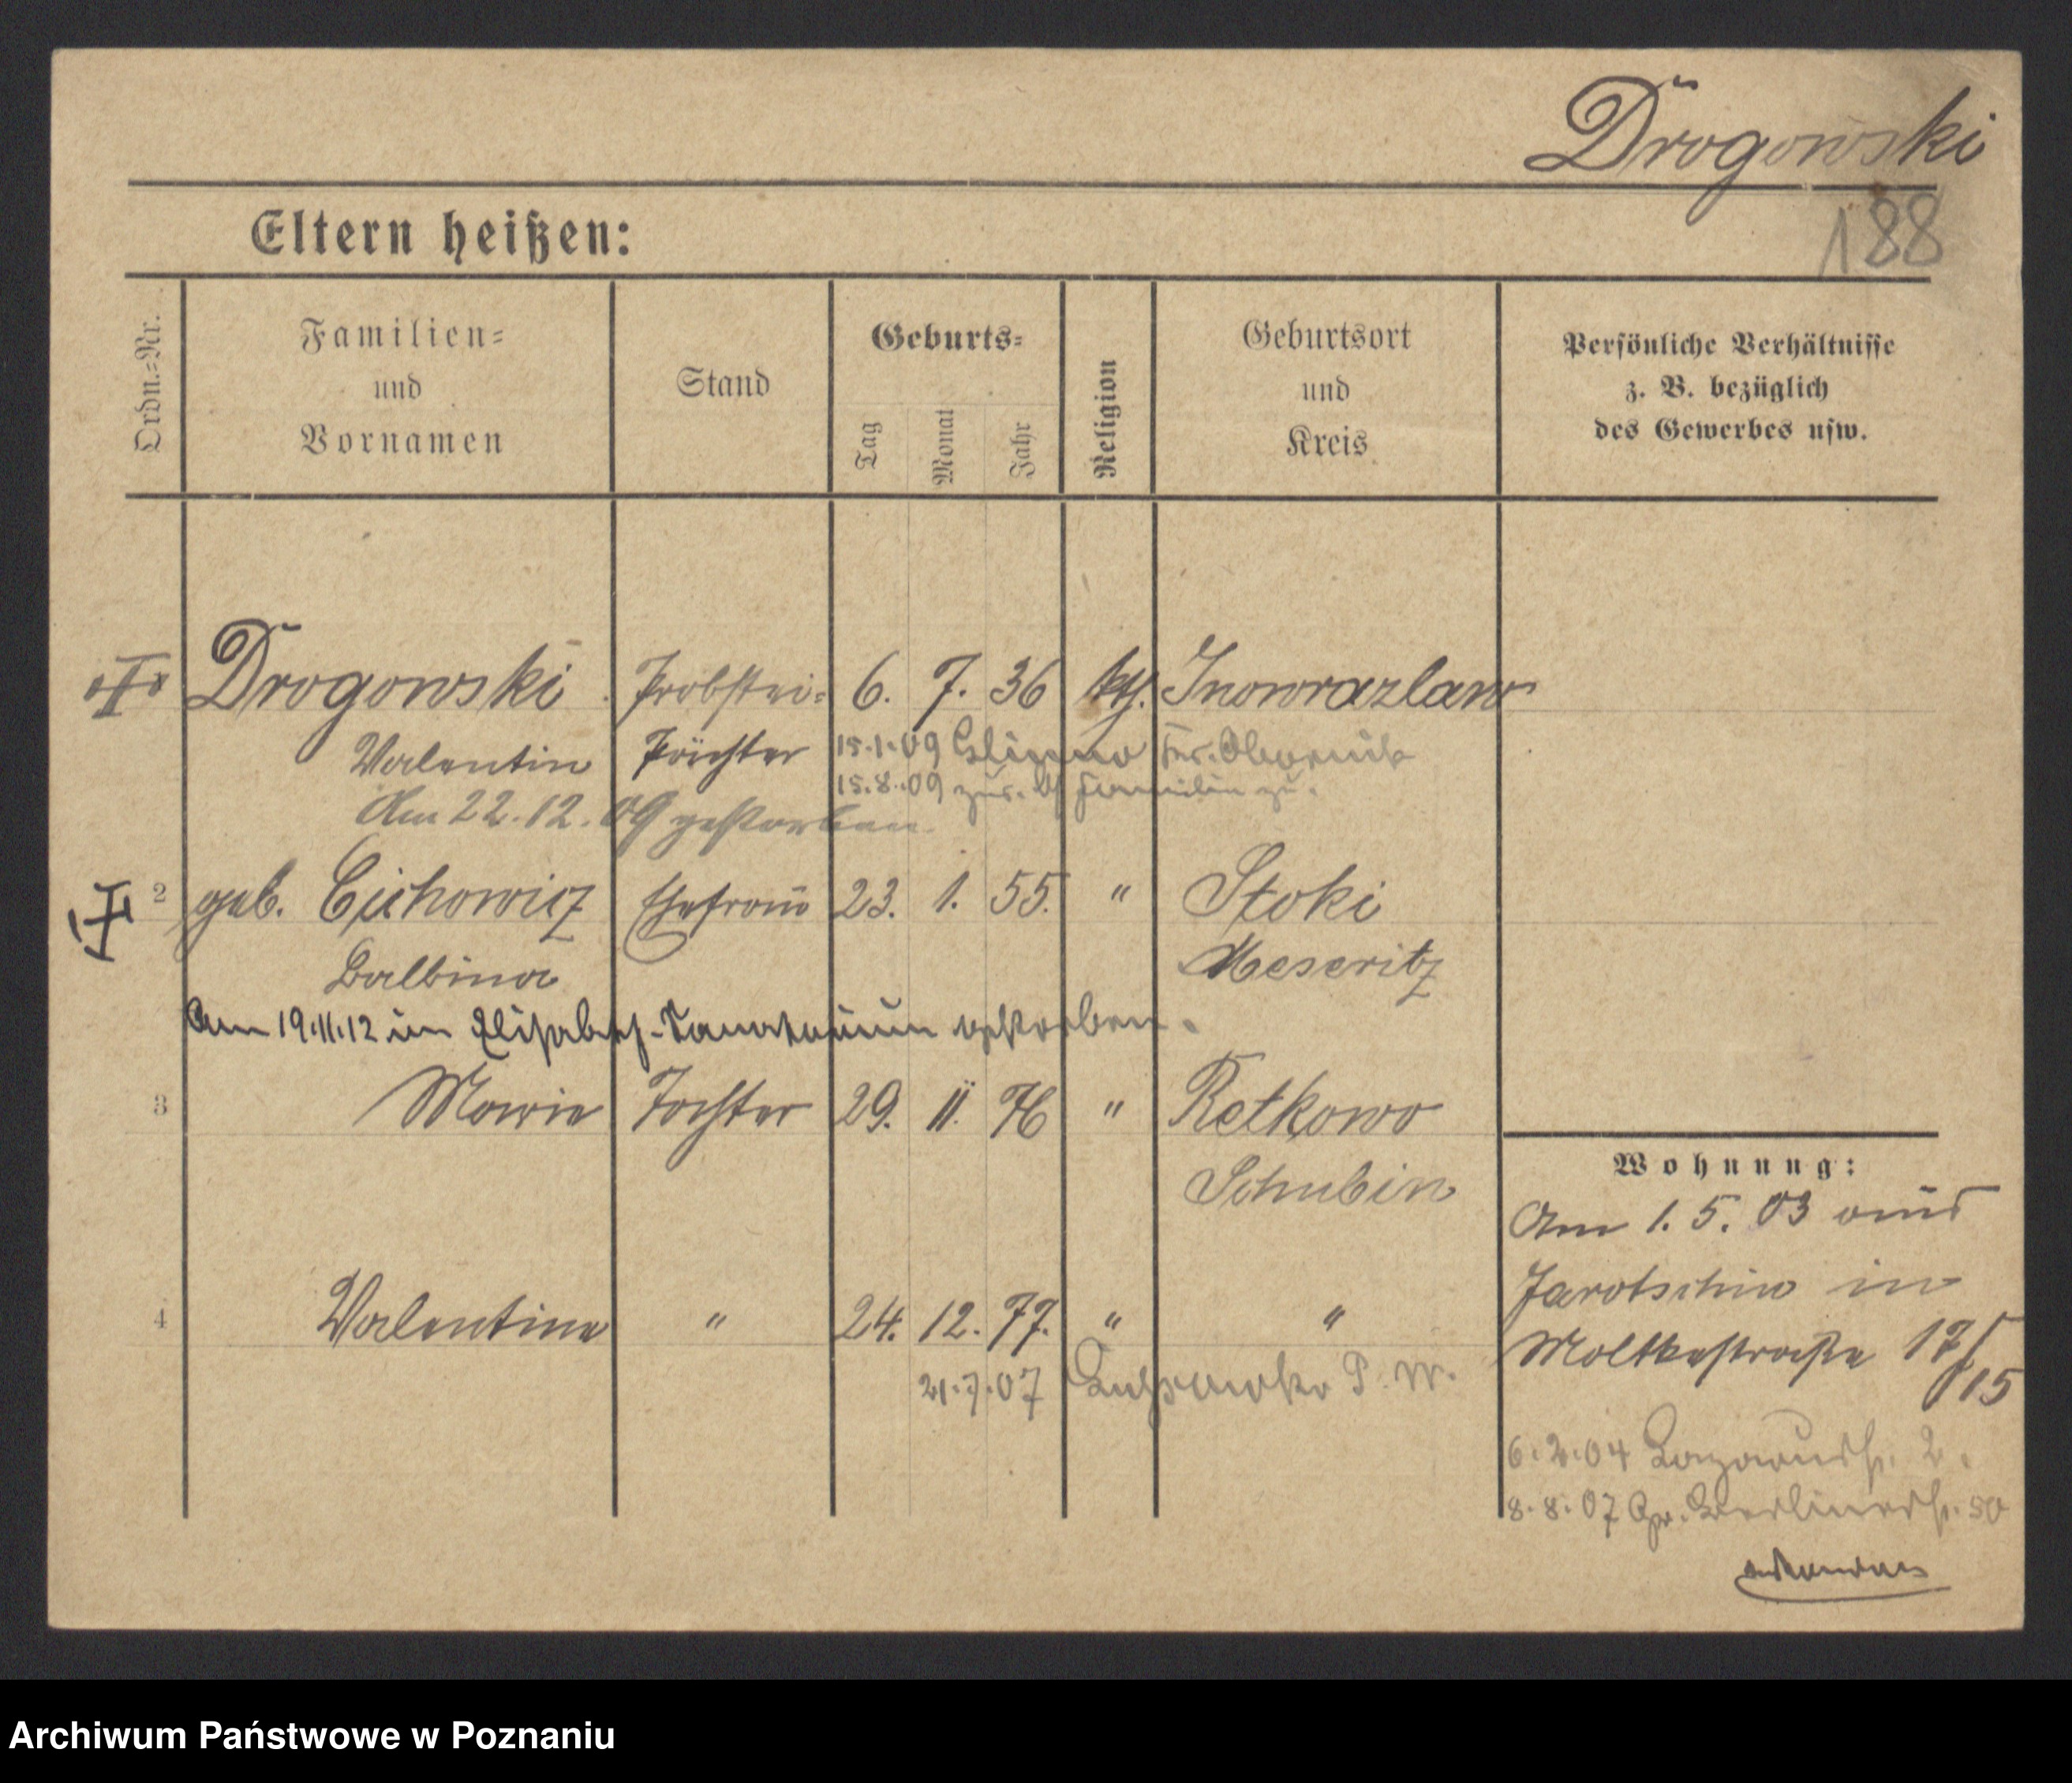 Drogowski
188
Eltern heißen:
Ordn.=Nr.
Familien=
und
Vornamen
Stand
Geburts=
Tag
Monat
Jahr
Religion
Geburtsort
und
Kreis
Persönliche Verhältnisse
z. B. bezüglich
des Gewerbes usw.
Drogowski Probstei= 6. 7. 36 kth. Inowrazlaw
Valentin Pächter 15.1.09 Kr. Obornik
15.8.09 zur. Familie zu.
Am 22.12.09 gestorben.
2 geb. Cichowicz Ehefrau 23. 1. 55. " Stoki
Balbina Meseritz
Am 19.11.12 im Elisabeth-Sanatorium gestorben.
3 Marie Tochter 29. 11. 76 " Retkowo
Schubin
Wohnung:
Am 1. 5. 03 aus
Jarotschin in
Moltkestraße 17/15
4 Valentine " 24. 12. 77. " "
21.7.07 P. W.
6.2.04 Lazarusstr. 2.
8.8.07 Gr. Berlinerstr. 50
Archiwum Państwowe w Poznaniu